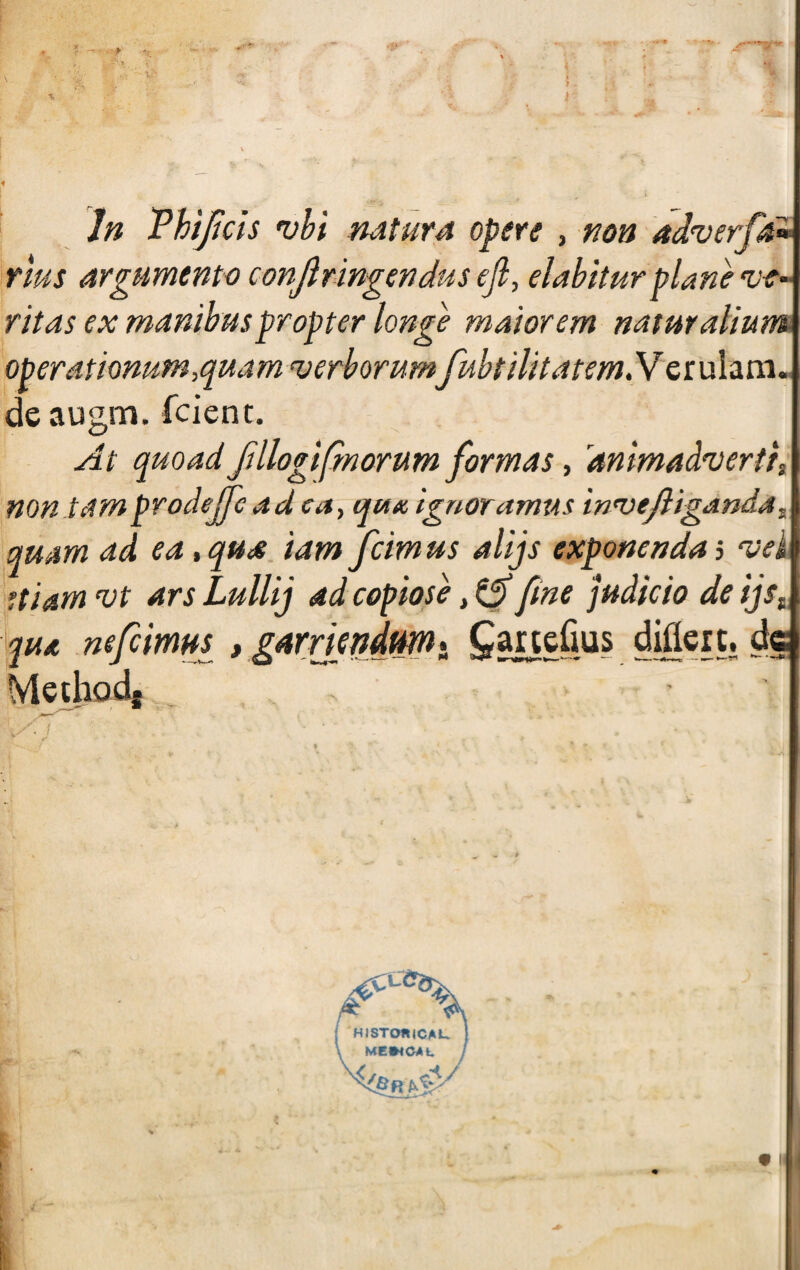 In Phiſicis vbi natura opere , non adverſa-
rius argumento conſtringendus eſt, elabitur planè ve-
ritas ex manibus propter longè maiorem naturalium
operationum,quam verborum ſubtilitatem. Verulam.
de augm. ſcient.
At quoad ſillogiſmorum formas, animadverti,
non tam prodeſſe ad ea, quæ ignoramus inveſtiganda,
quam ad ea, quæ iam ſcimus alijs exponenda; vel
etiam vt ars Lullij ad copiosè, & ſine judicio de ijs,
quæ neſcimus , garriendum. Carteſius diſſert. de
Method.
WELLCOME
HISTORICAL
MEDICAL
LIBRARY